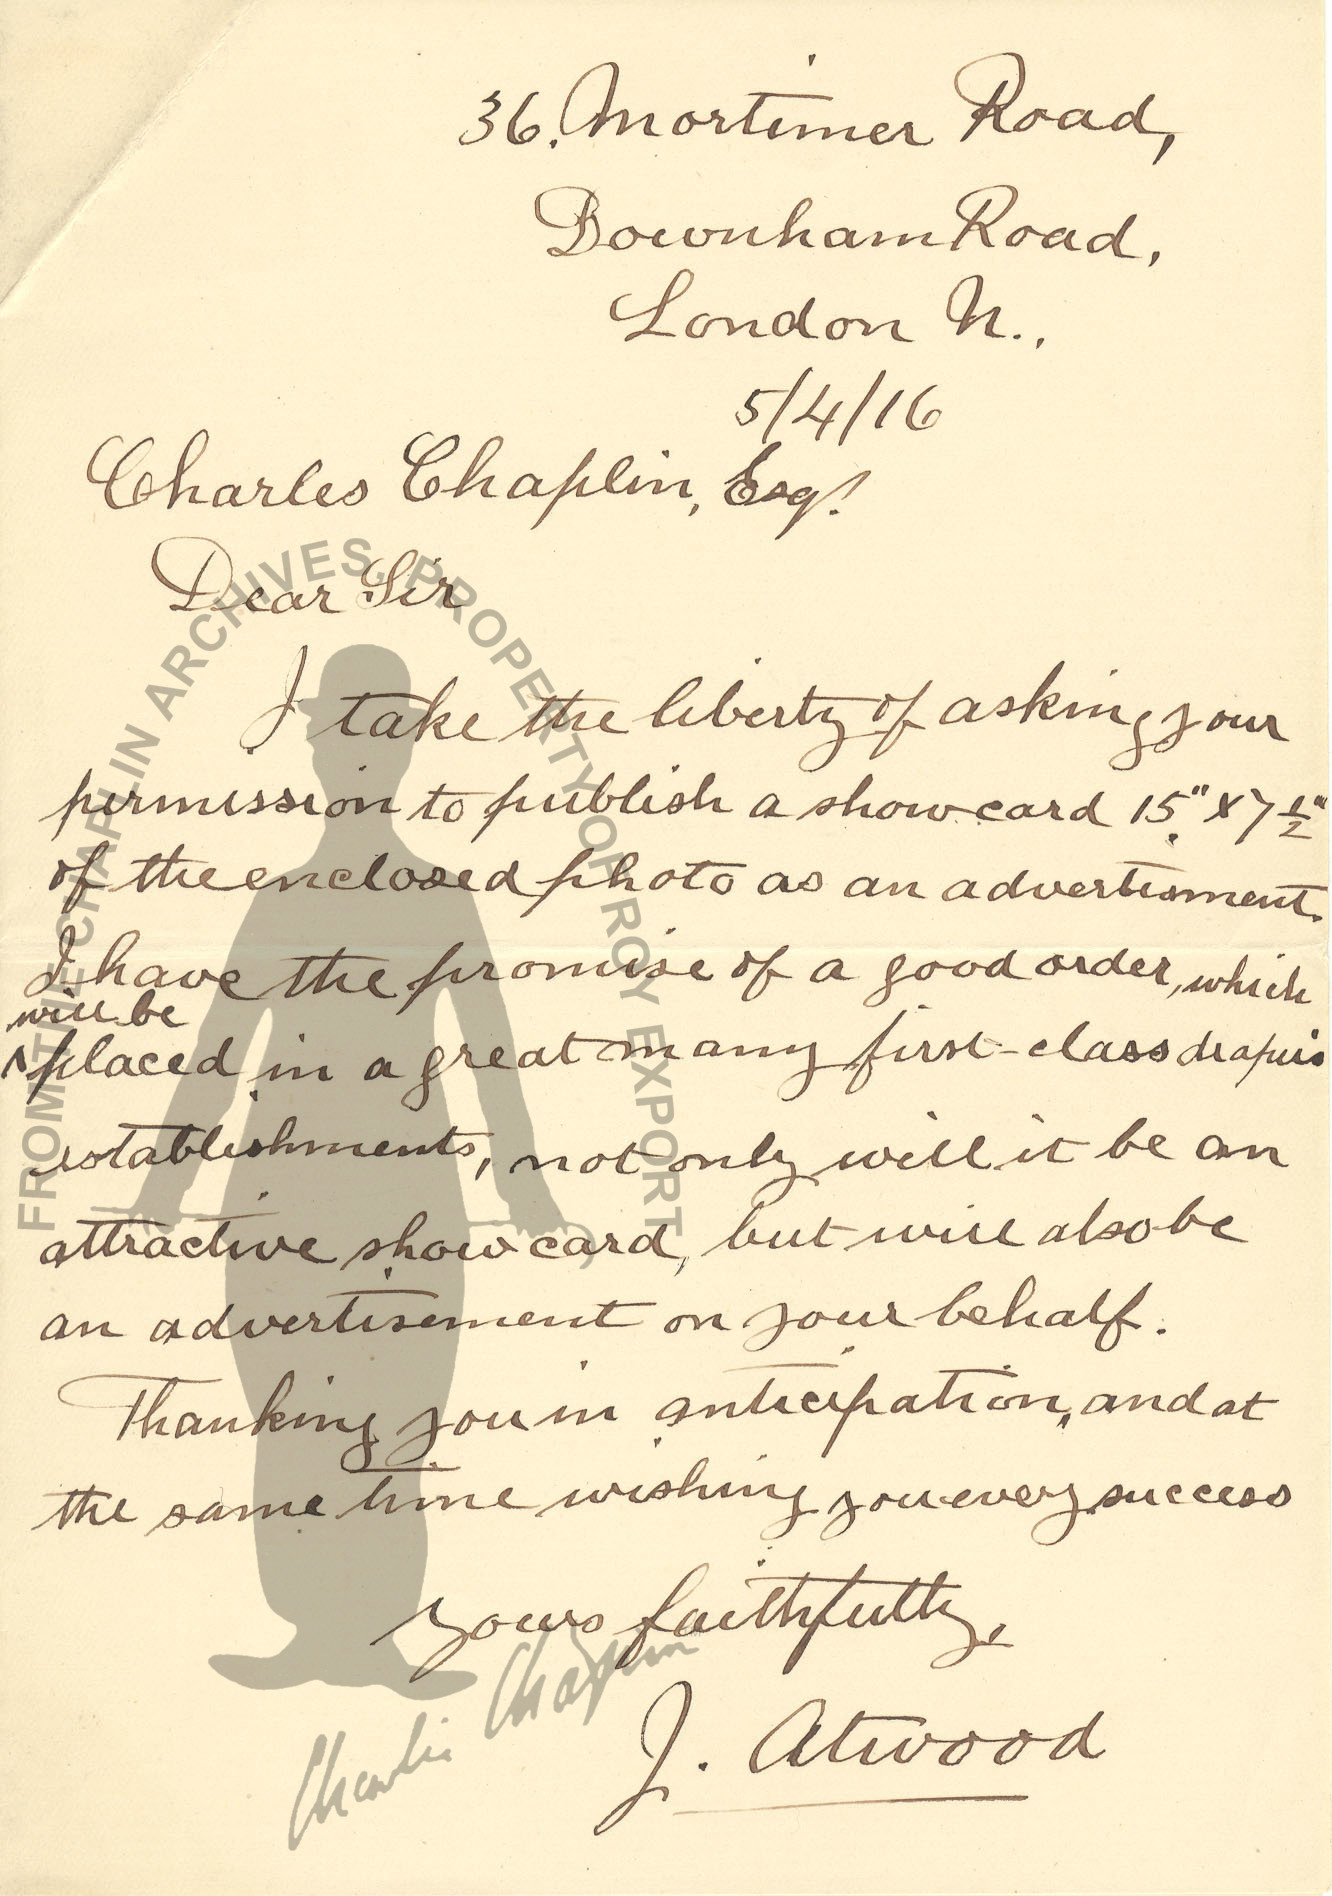 36. Mortimer Road,
Downham Road,
London N.,
5/4/16
Charles Chaplin, Esq.
Dear Sir
I take the liberty of asking your
permission to publish a show card 15" x 7 1/2"
of the enclosed photo as an advertisment.
I have the promise of a good order, which
will be
^ placed in a great many first-class drapers
establishments, not only will it be an
attractive show card, but will also be
an advertisement on your behalf.
Thanking you in anticipation, and at
the same time wishing you every success
yours faithfully,
J. Atwood
FROM THE CHAPLIN ARCHIVES, PROPERTY OF ROY EXPORT
Charlie Chaplin